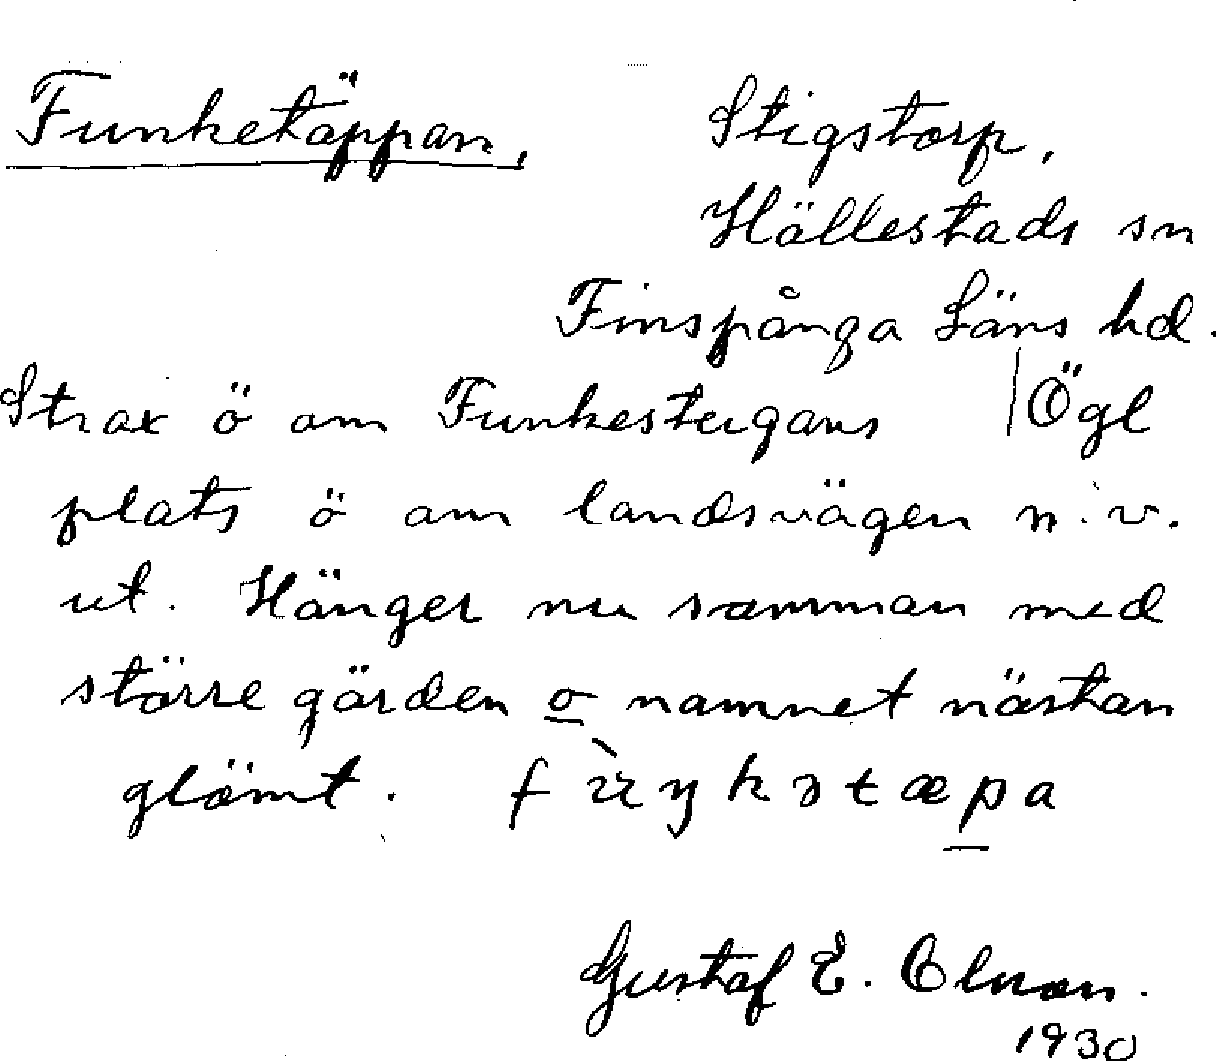 Funketäppan, Stigstorp,
Hällestads sn
Finspånga Läns hd.
Strax ö om Funkestugans | Ögl
plats ö om landsvägen n.v.
ut. Hänger nu samman med
större gärden o namnet nästan
glömt.
Gustaf E. Olsson.
1930